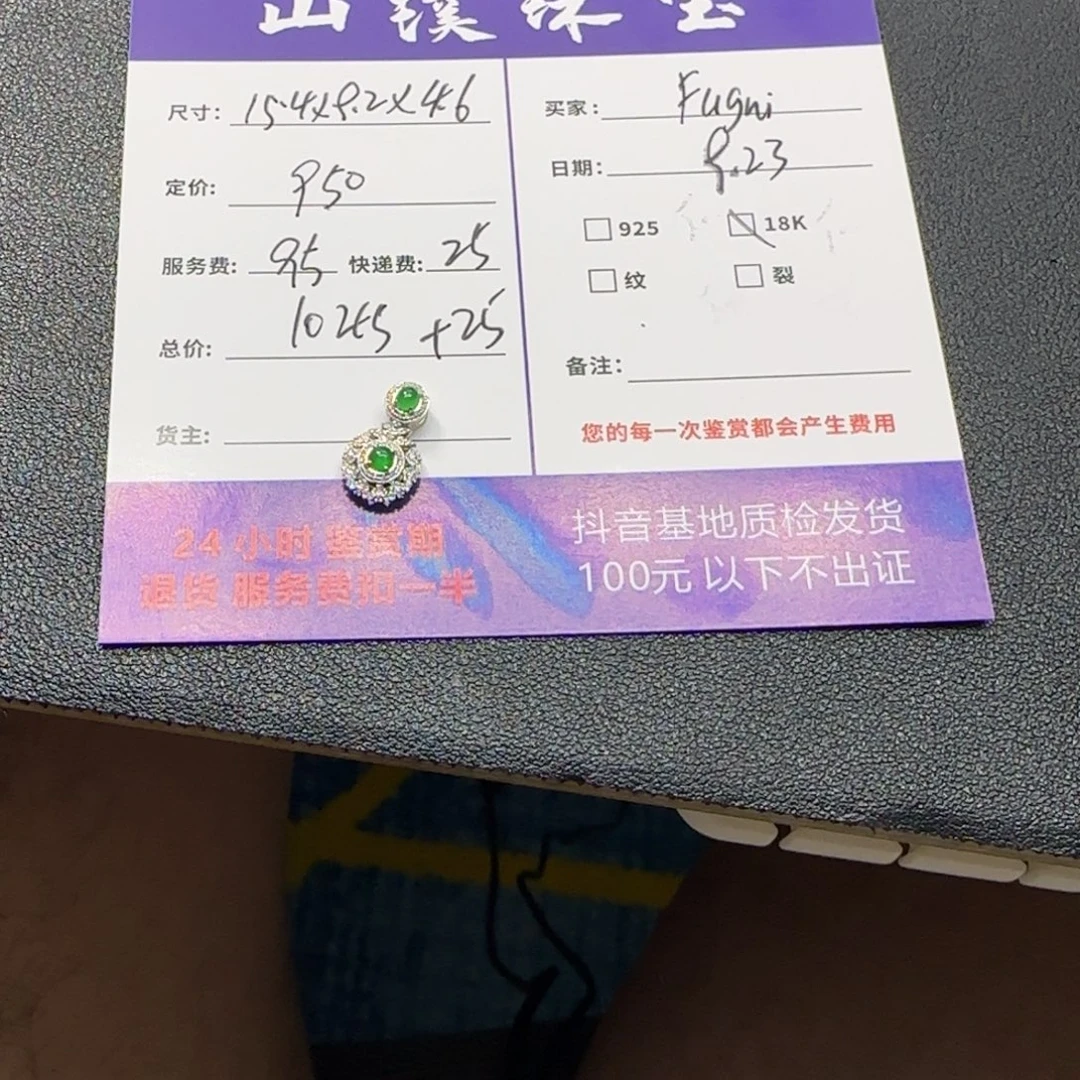 山镁珠宝
尺寸: 15.4x9.2x4.6
定价: 950
服务费: 95 快递费: 25
总价: 1045 +25
货主:
24小时 鉴赏期
退货 服务费扣一半
买家: Fugui
日期: 9.23
925 18K
纹 裂
备注:
您的每一次鉴赏都会产生费用
抖音基地质检发货
100元以下不出证